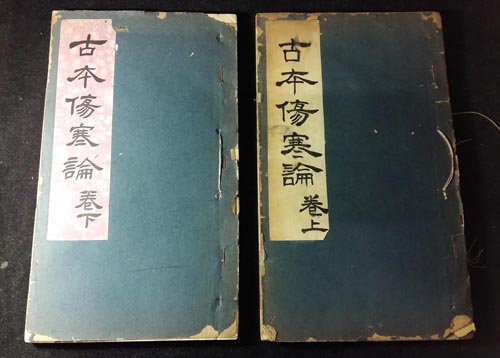 古本傷寒論 卷上
古本傷寒論 卷下